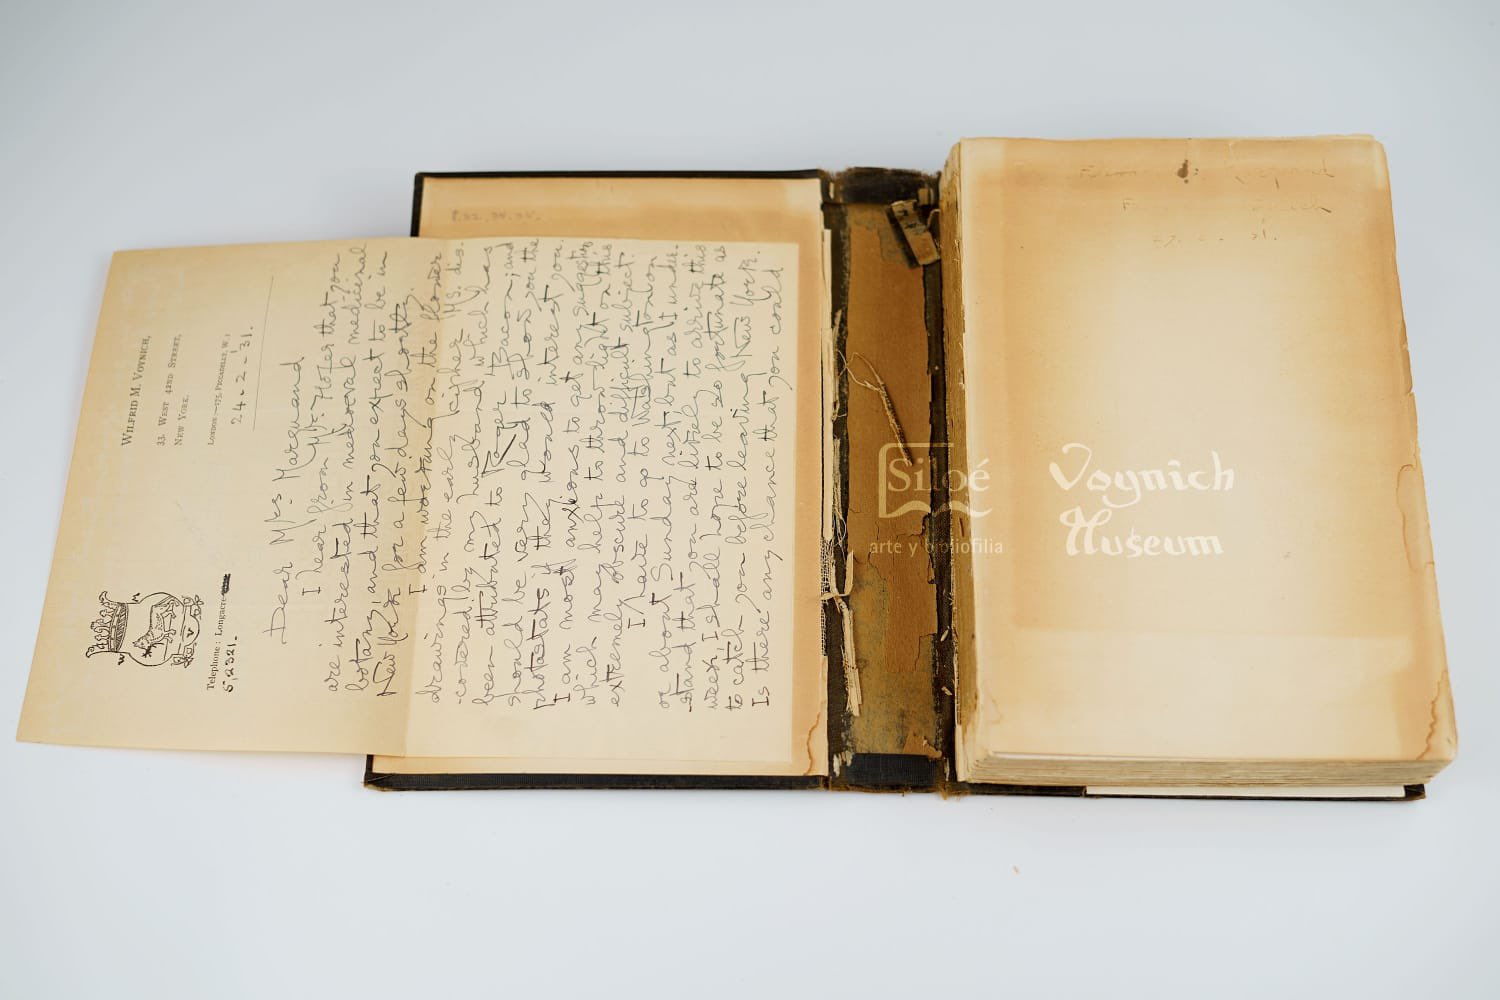 WILFRID M. VOYNICH,
33 WEST 42ND STREET,
NEW YORK.
LONDON:—175, PICCADILLY, W.1
24-2-'31.
W M
V
Telephone: Longacre
5,2321.
Dear Mrs. Marquand
I hear from Mr. Hofer that you
are interested in mediæval medicinal
botany, and that you expect to be in
New York for a few days shortly.
I am working on the flower
drawings in the early cipher MS. dis-
-covered by my husband which has
been attributed to Roger Bacon; and
should be very glad to show you the
photostats if they would interest you.
I am most anxious to get any suggestion
which may help to throw light on this
extremely obscure and difficult subject.
I have to go to Washington on
or about Sunday next, but as I under-
-stand that you are likely to arrive this
week, I shall hope to be so fortunate as
to catch you before leaving New York.
Is there any chance that you could
P.22.24.25.
Siloé
arte y bibliofilia
Voynich
Museum